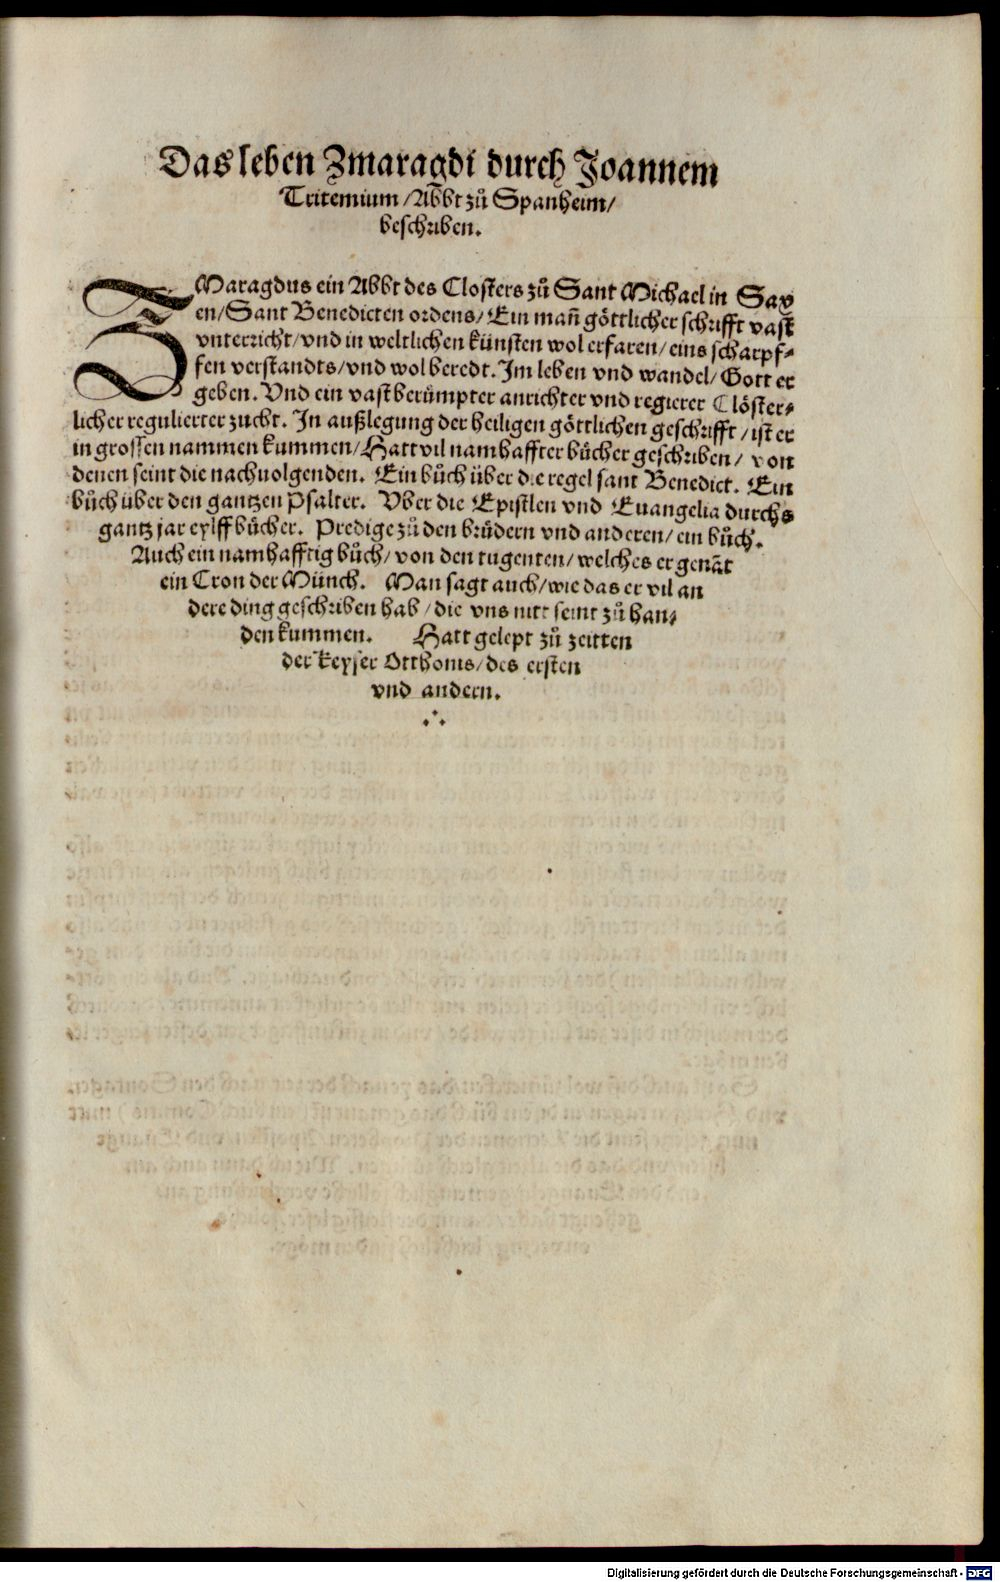 Das leben Zmaragdi durch Joannem
Tritemium/Abbt zů Spanheim/
beschriben.
ZMaragdus ein Abbt des Closters zů Sant Michael in Sax
en/Sant Benedicten ordens/Ein mañ göttlicher schrifft vast
vnterricht/vnd in weltlichen künsten wol erfaren/eins scharpf⸗
fen verstandts/vnd wol beredt. Im leben vnd wandel/Gott er
geben. Vnd ein vast berümpter anrichter vnd regierer Clöster⸗
licher regulierter zucht. In außlegung der heiligen göttlichen geschrifft/ist er
in grossen nammen kummen/Hatt vil namhaffter bücher geschriben/von
denen seint die nachuolgenden. Ein bůch über die regel sant Benedict. Ein
bůch über den gantzen Psalter. Vber die Epistlen vnd Euangelia durchs
gantz jar eylff bücher. Predige zů den brüdern vnd anderen/ein bůch.
Auch ein namhafftig bůch/von den tugenten/welches er genãt
ein Cron der Münch. Man sagt auch/wie das er vil an
dere ding geschriben hab/die vns nitt seint zů han⸗
den kummen. Hatt gelept zů zeitten
der Keyser Otthonis/des ersten
vnd andern.
Digitalisierung gefördert durch die Deutsche Forschungsgemeinschaft - DFG